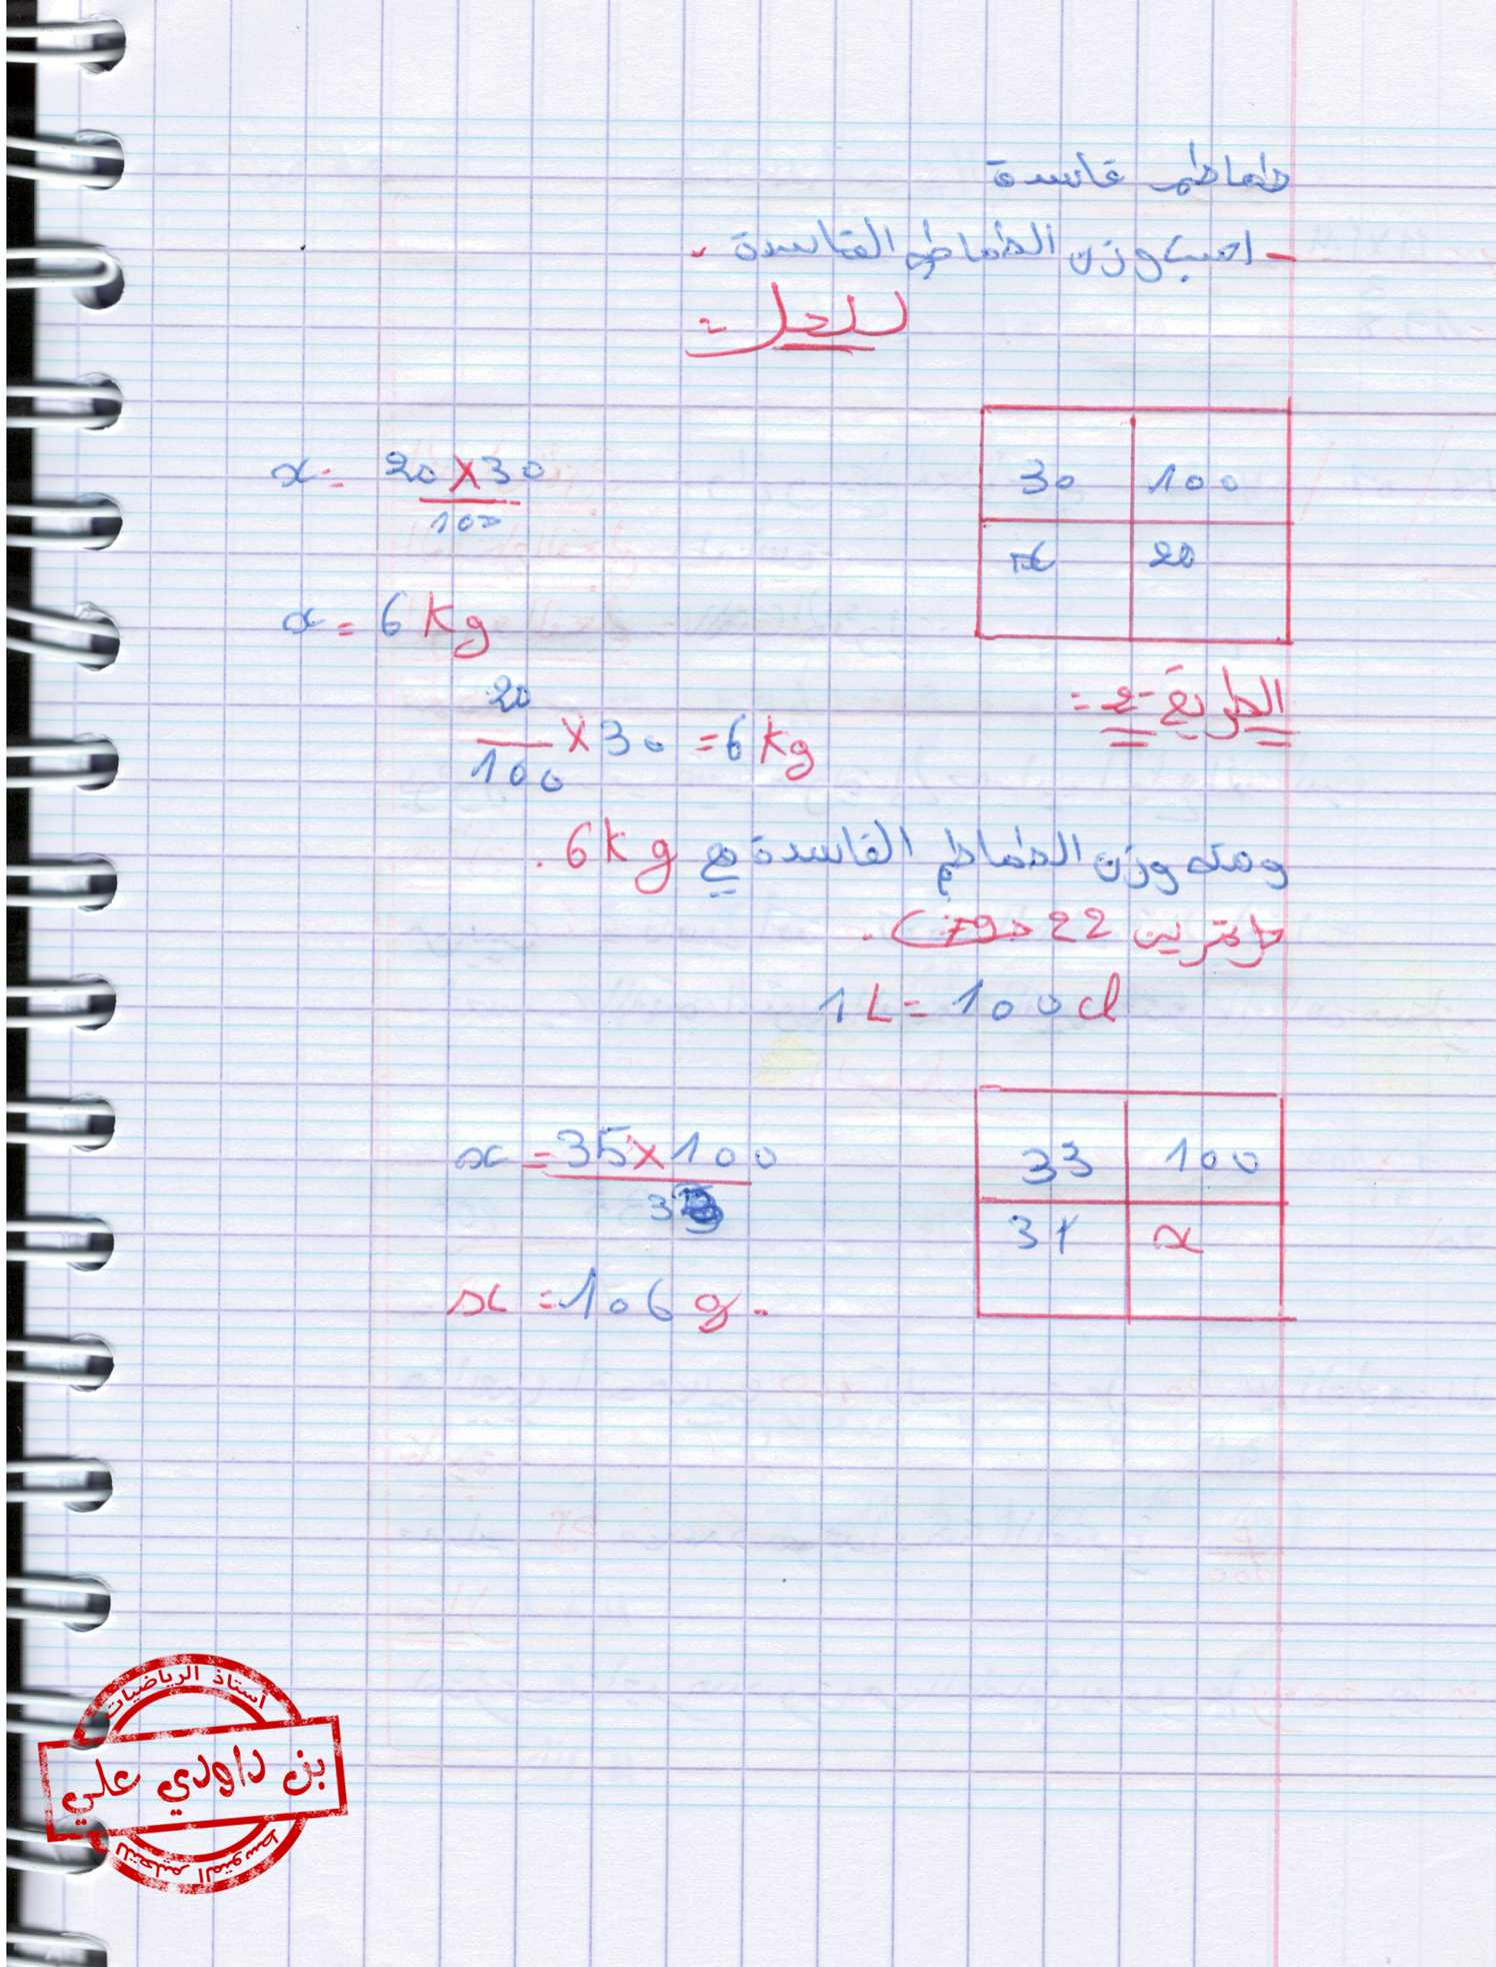 طماطم فاسدة
- احسب وزن الطماطم الفاسدة .
الحل :
30 100
x 20
x = 20 × 30
100
x = 6 Kg
الطريقة 2 :
20
100 × 30 = 6 Kg
ومنه وزن الطماطم الفاسدة هي 6 Kg .
تمرين 22 ص 79 .
1 L = 100 cl
33 100
x
x = 35 × 100
33
x = 106 g .
أستاذ الرياضيات
بن داودي علي
للتعليم المتوسط